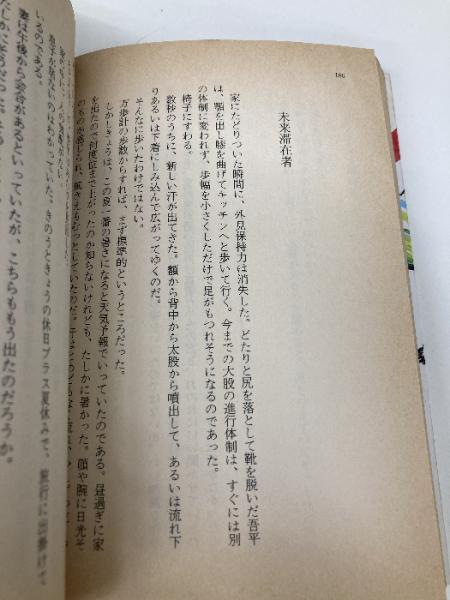 186
未来滞在者
家にたどりついた瞬間に、外見保持力は消失した。どたりと尻を落として靴を脱いだ吾平
は、顎を出し膝を曲げてキッチンへと歩いて行く。今までの大股の進行体制は、すぐには別
の体制に変われず、歩幅を小さくしただけで足がもつれそうになるのであった。
椅子にすわる。
数秒のうちに、新しい汗が出てきた。額から背中から太股から噴出して、あるいは流れ下
りあるいは下着にしみ込んで広がってゆくのだ。
そんなに歩いたわけではない。
万歩計の歩数からすれば、まず標準的というところだった。
しかしきょうは、この夏一番の暑さになると天気予報でいっていたのである。昼過ぎに家
を出たので何度位まで上がったのか知らないけれども、たしかに暑かった。顔や腕に日光そ
のものを感じられ、
息子が居ないのはわかっていた。きのうときょうの休日プラス夏休みで、旅行に出掛けて
いるのである。
妻は午後から会合があるといっていたが、こちらももう出たのだろうか。